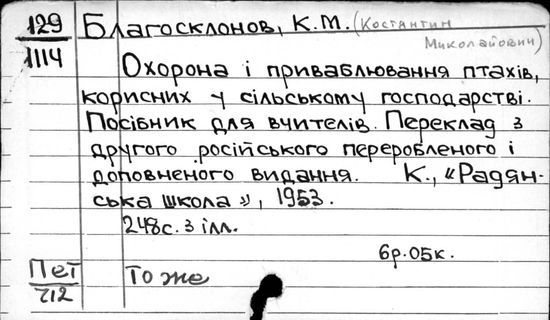 129 Благосклонов, К.М. (Костантин
Миколайович)
1114 Охорона і приваблювання птахів,
корисних у сільському господарстві.
Посібник для вчителів. Переклад з
другого російського переробленого і
доповненого видання. К., «Радян-
ська школа», 1953.
248с. з ілл.
6р.05к.
Пет То же
712